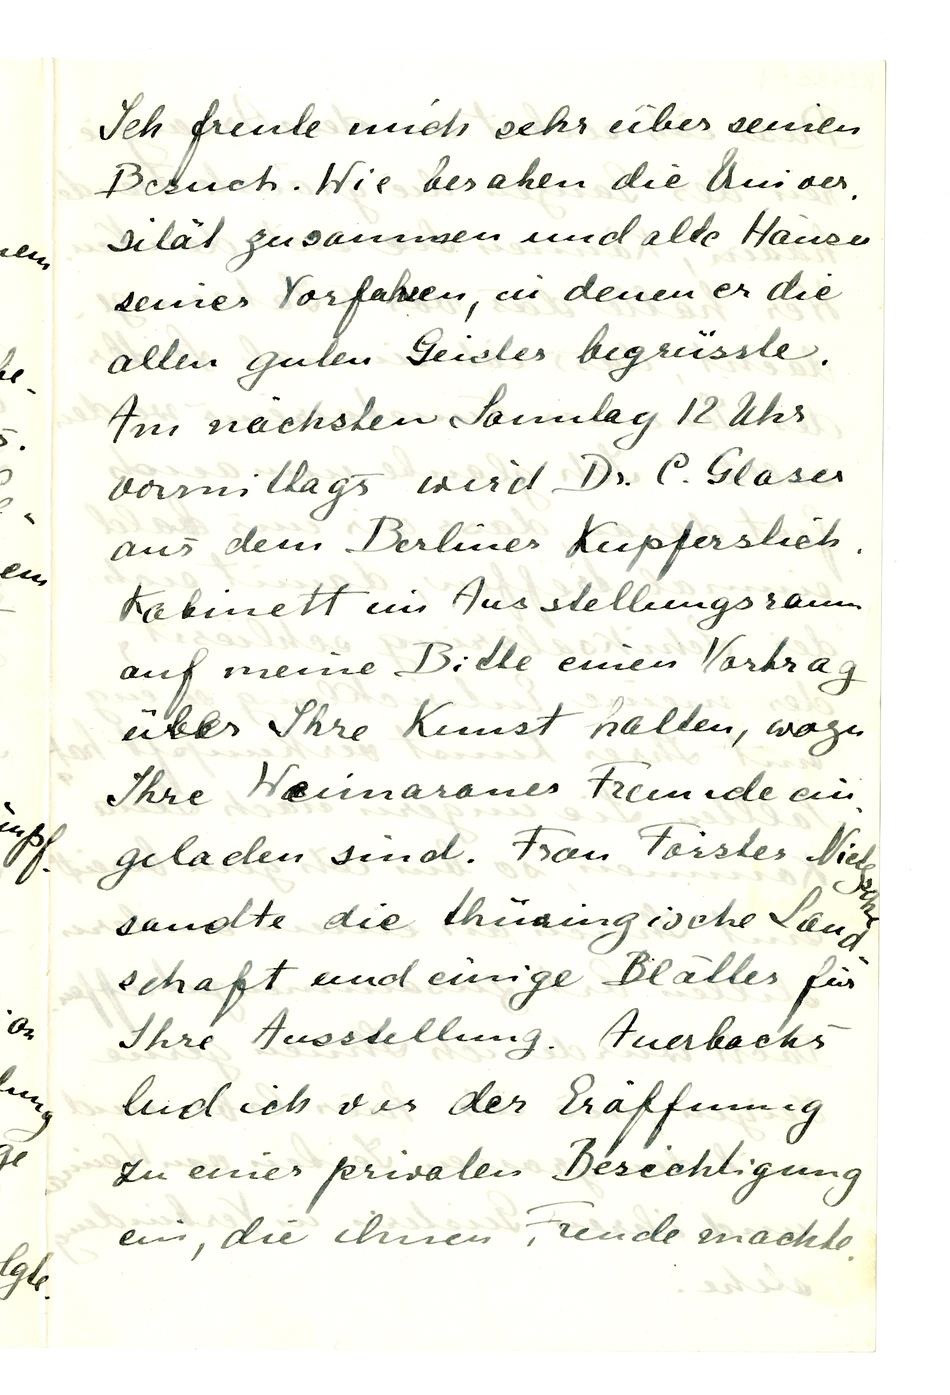 Ich freute mich sehr über seinen
Besuch. Wie besahen die Univer-
sität zusammen und alte Häuser
seiner Vorfahren, in denen er die
alten guten Geister begrüsste.
Am nächsten Sonntag 12 Uhr
vormittags wird Dr. C. Glaser
aus dem Berliner Kupferstich-
Kabinett im Ausstellungsraum
auf meine Bitte einen Vortrag
über Ihre Kunst halten, wozu
Ihre Weimaraner Freunde ein-
geladen sind. Frau Förster Nietzsche
sandte die thüringische Land-
schaft und einige Blätter für
Ihre Ausstellung. Auerbachs
lud ich vor der Eröffnung
zu einer privaten Besichtigung
ein, die ihnen Freude machte.